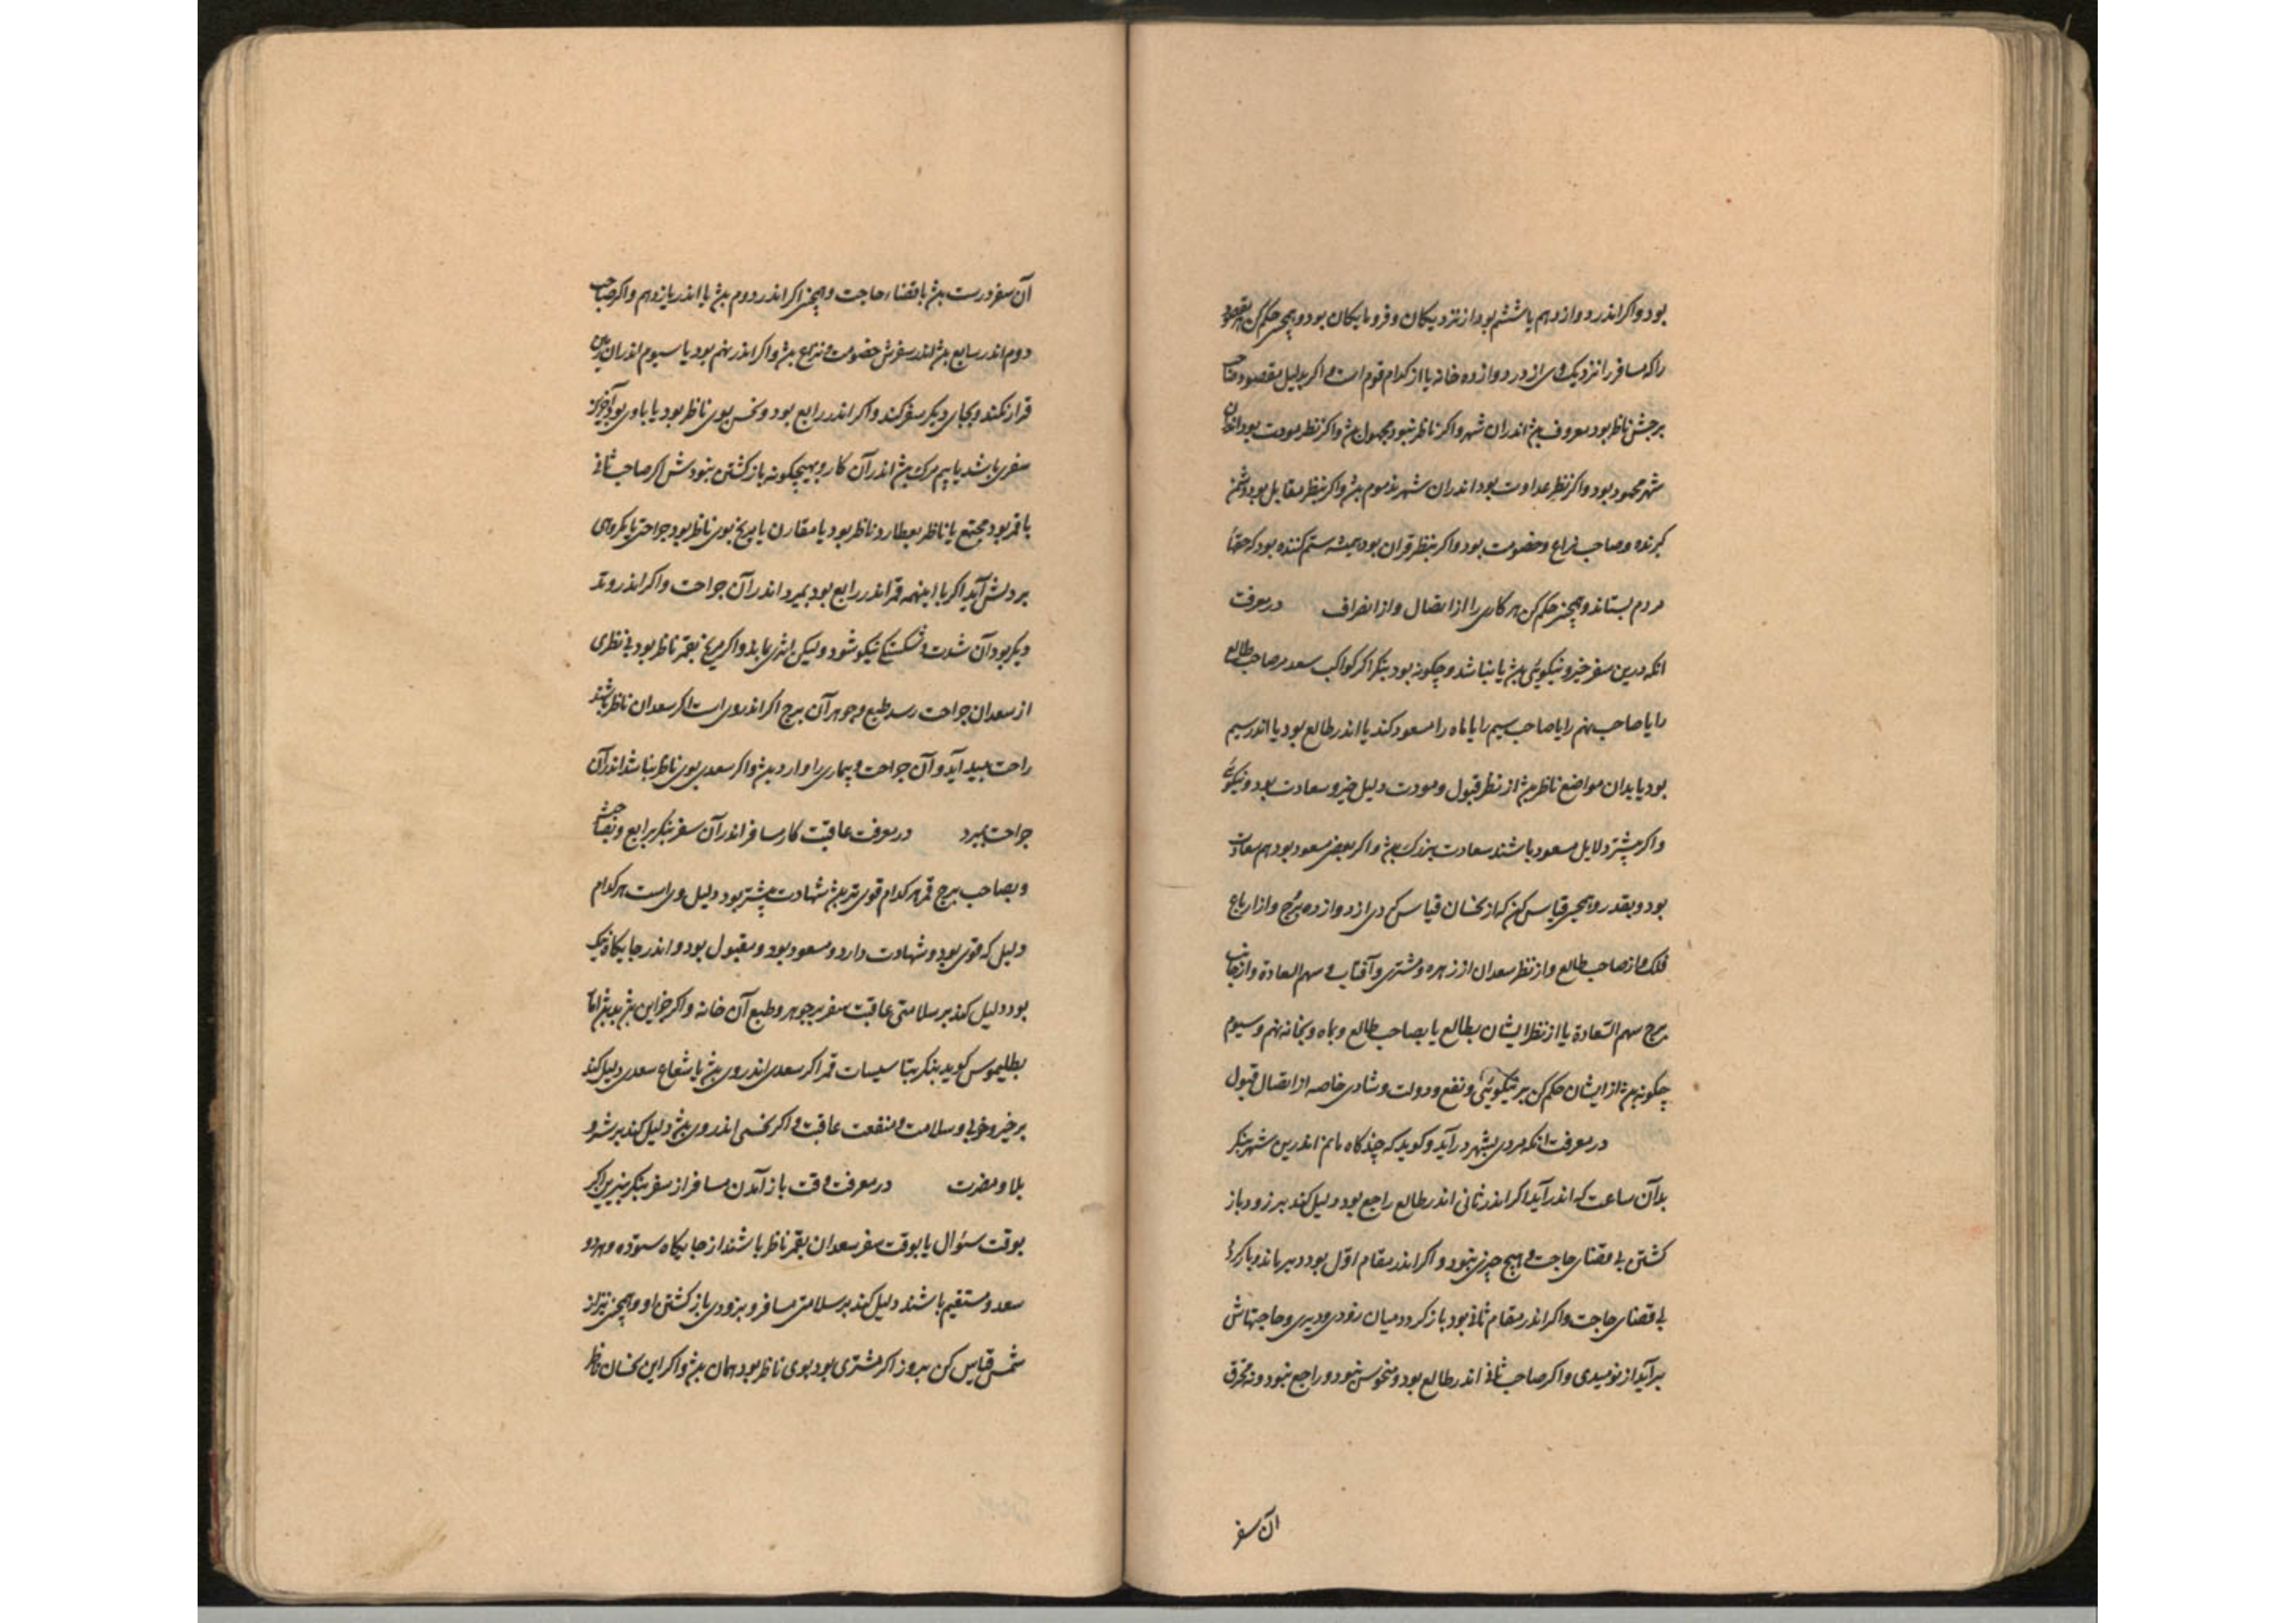 بود و اکر اندر دوازدهم یا ششم بود از نزدیکان و فرومایکان بود و همچنین حکم کن هر مقصود
را که مسافر را نزدیک وی از در دوازده خانه یا از کدام قوم است و اکر بدلیل مقصود صاحب
برجش ناظر بود معروف بود اندران شهر و اکر ناظر نبود مجهول بود و اکر نظر مودت بود اندران
شهر محمود بود و اکر نظر عداوت بود اندران شهر مذموم بود و اکر بنظر مقابل بود دشمن
کیرنده و صاحب نزاع و خصومت بود و اکر بنظر قران بود همیشه ستم کننده بود که حقها
مردم بستاند و همچنین حکم کن هر کاری را از اتصال و از انصراف در معرفت
انکه درین سفر خیر و نیکوئی بود یا نباشد و چکونه بود بنکر اکر کواکب سعد مر صاحب طالع
را یا صاحب نهم را یا صاحب سیم را یا ماه را مسعود کند یا اندر طالع بود یا اندر سیم
بود یا بدان مواضع ناظر بود از نظر قبول و مودت دلیل خیر و سعادت بود و نیکوئی
و اکر بیشتر دلایل مسعود باشند سعادت بزرک بود و اکر بعضی مسعود بود هم سعادت
بود و بقدر و همچنین قیاس کن که از نحسان قیاس کردی از دوازده برج و از ارباع
فلک و از صاحب طالع و از نظر سعدان از زهره و مشتری و آفتاب و سهم السعادة و از صاحب
برج سهم السّعادة یا از نظر ایشان بطالع یا بصاحب طالع و بماه و بخانه نهم و سیوم
چکونه بود از ایشان حکم کن بر نیکوئی و نفع و دولت و شادی خاصه از اتصال قبول
در معرفت انکه مردی بشهر درآید و کوید که چند کاه مانم اندرین شهر بنکر
بدآن ساعت که اندر آید اکر اندر ثانی اندر طالع راجع بود دلیل کند بر زود باز
کشتن بی قضای حاجت و هیچ چیزی نبود و اکر اندر مقام اوّل بود دیر ماند و باز کردد
بی قضای حاجت و اکر اندر مقام ثانی بود باز کردد میان زودی و دیری و حاجتهاش
برآید از نومیدی و اکر صاحب ثانی اندر طالع بود و منحوس نبود و راجع نبود و نه محترق
آن سفر
آن سفر درست بود با قضاء حاجت و همچنین اکر اندر دوم بود یا اندر یازدهم و اکر صاحب
دوم اندر سابع بود اندر سفرش خصومت و نزاع بود و اکر اندر نهم بود یا سیوم اندران زمین
قرار نکند و بجای دیکر سفر کند و اکر اندر رابع بود و نحس بوی ناظر بود یا با وی بود آخر
سفری باشد یا بیم مرک بود اندر آن کار و بهیچکونه باز کشتن نبودش اکر صاحب ثانی
با قمر بود مجتمع یا ناظر بعطارد ناظر بود یا مقارن یا مریخ بوی ناظر بود جراحتی یا مکروهی
بر دلش آید اکر با اینهمه قمر اندر رابع بود بمیرد اندر آن جراحت و اکر اندر وتد
دیکر بود آن شدت و شکستکی نیکو شود ولیکن اثری بماند و اکر مریخ بقمر ناظر بود بی نظری
از سعدان جراحت رسد طبع و جوهر آن برج اکر اندر وی است اکر سعدان ناظر باشند
راحت پدید آید و آن جراحت و بیماری را دارو بود و اکر سعدی بوی ناظر نباشد اندر آن
جراحت بمیرد در معرفت عاقبت کار مسافر اندر آن سفر بنکر برابع و بصاحبش
و بصاحب برج قمر هر کدام قوی تر بود شهادت بیشتر بود دلیل وی راست هر کدام
دلیل که قوی بود و شهادت دارد و مسعود بود و مقبول بود و اندر جایکاه نیک
بود دلیل کند بر سلامتی عاقبت سفر بر جوهر و طبع آن خانه و اکر جز این بود بد بود اما
بطلیموس کوید بنکر بتاسیسات قمر اکر سعدی اندر وی بود یا شعاع سعدی دلیل کند
بر خیر و خوبی و سلامت و منفعت عاقبت و اکر نحسی اندر وی بود دلیل کند بر شر و
بلا و مضرت در معرفت وقت باز آمدن مسافر از سفر بنکر بنیرین اکر
بوقت سئوال یا بوقت سفر سعدان بقمر ناظر باشند از جایکاه ستوده و هر دو
سعد و مستقیم باشند دلیل کند بر سلامتی مسافر و بزودی باز کشتن او و همچنین نیز از
شمس قیاس کن بروز اکر مشتری بود بوی ناظر بود همان بود و اکر این نحسان ناظر